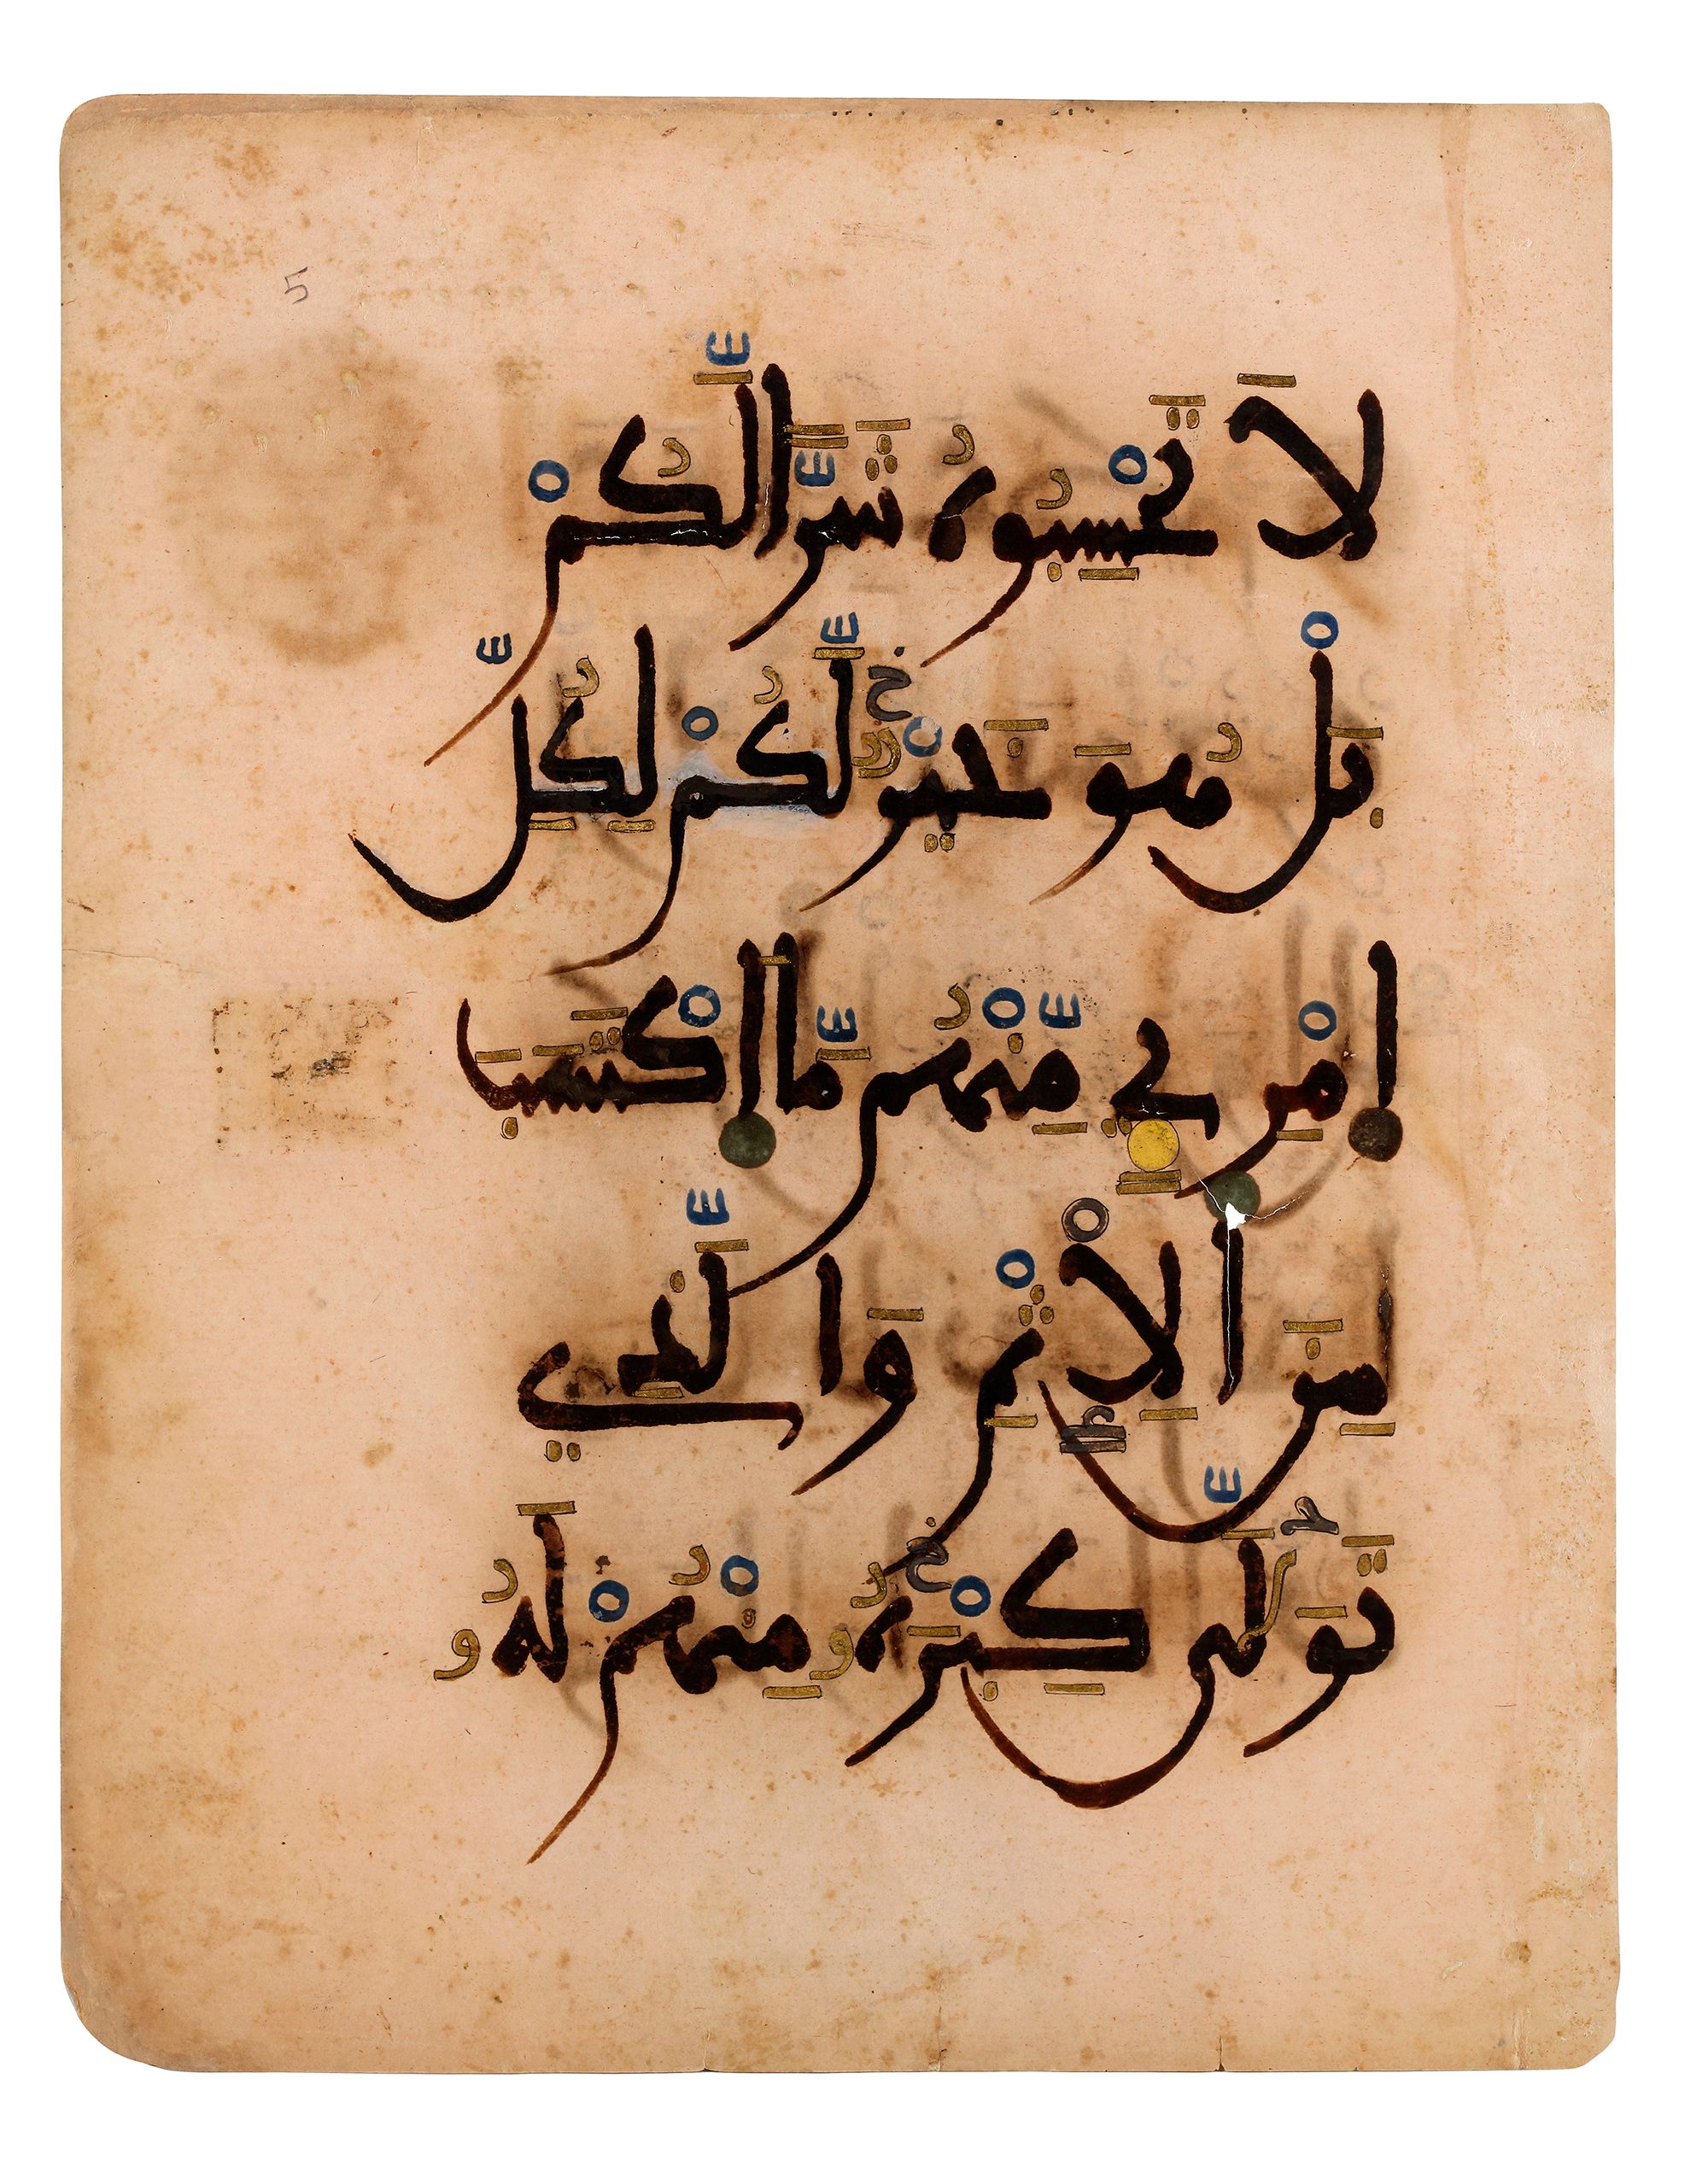 5
لَا تَحْسِبُوهُ شَرًّا لَّكُمْ
بَلْ هُوَ خَيْرٌ لَّكُمْ لِكُلِّ
امْرِئٍ مِّنْهُم مَّا اكْتَسَبَ
مِنَ الْإِثْمِ وَالَّذِي
تَوَلَّىٰ كِبْرَهُ مِنْهُمْ لَهُ